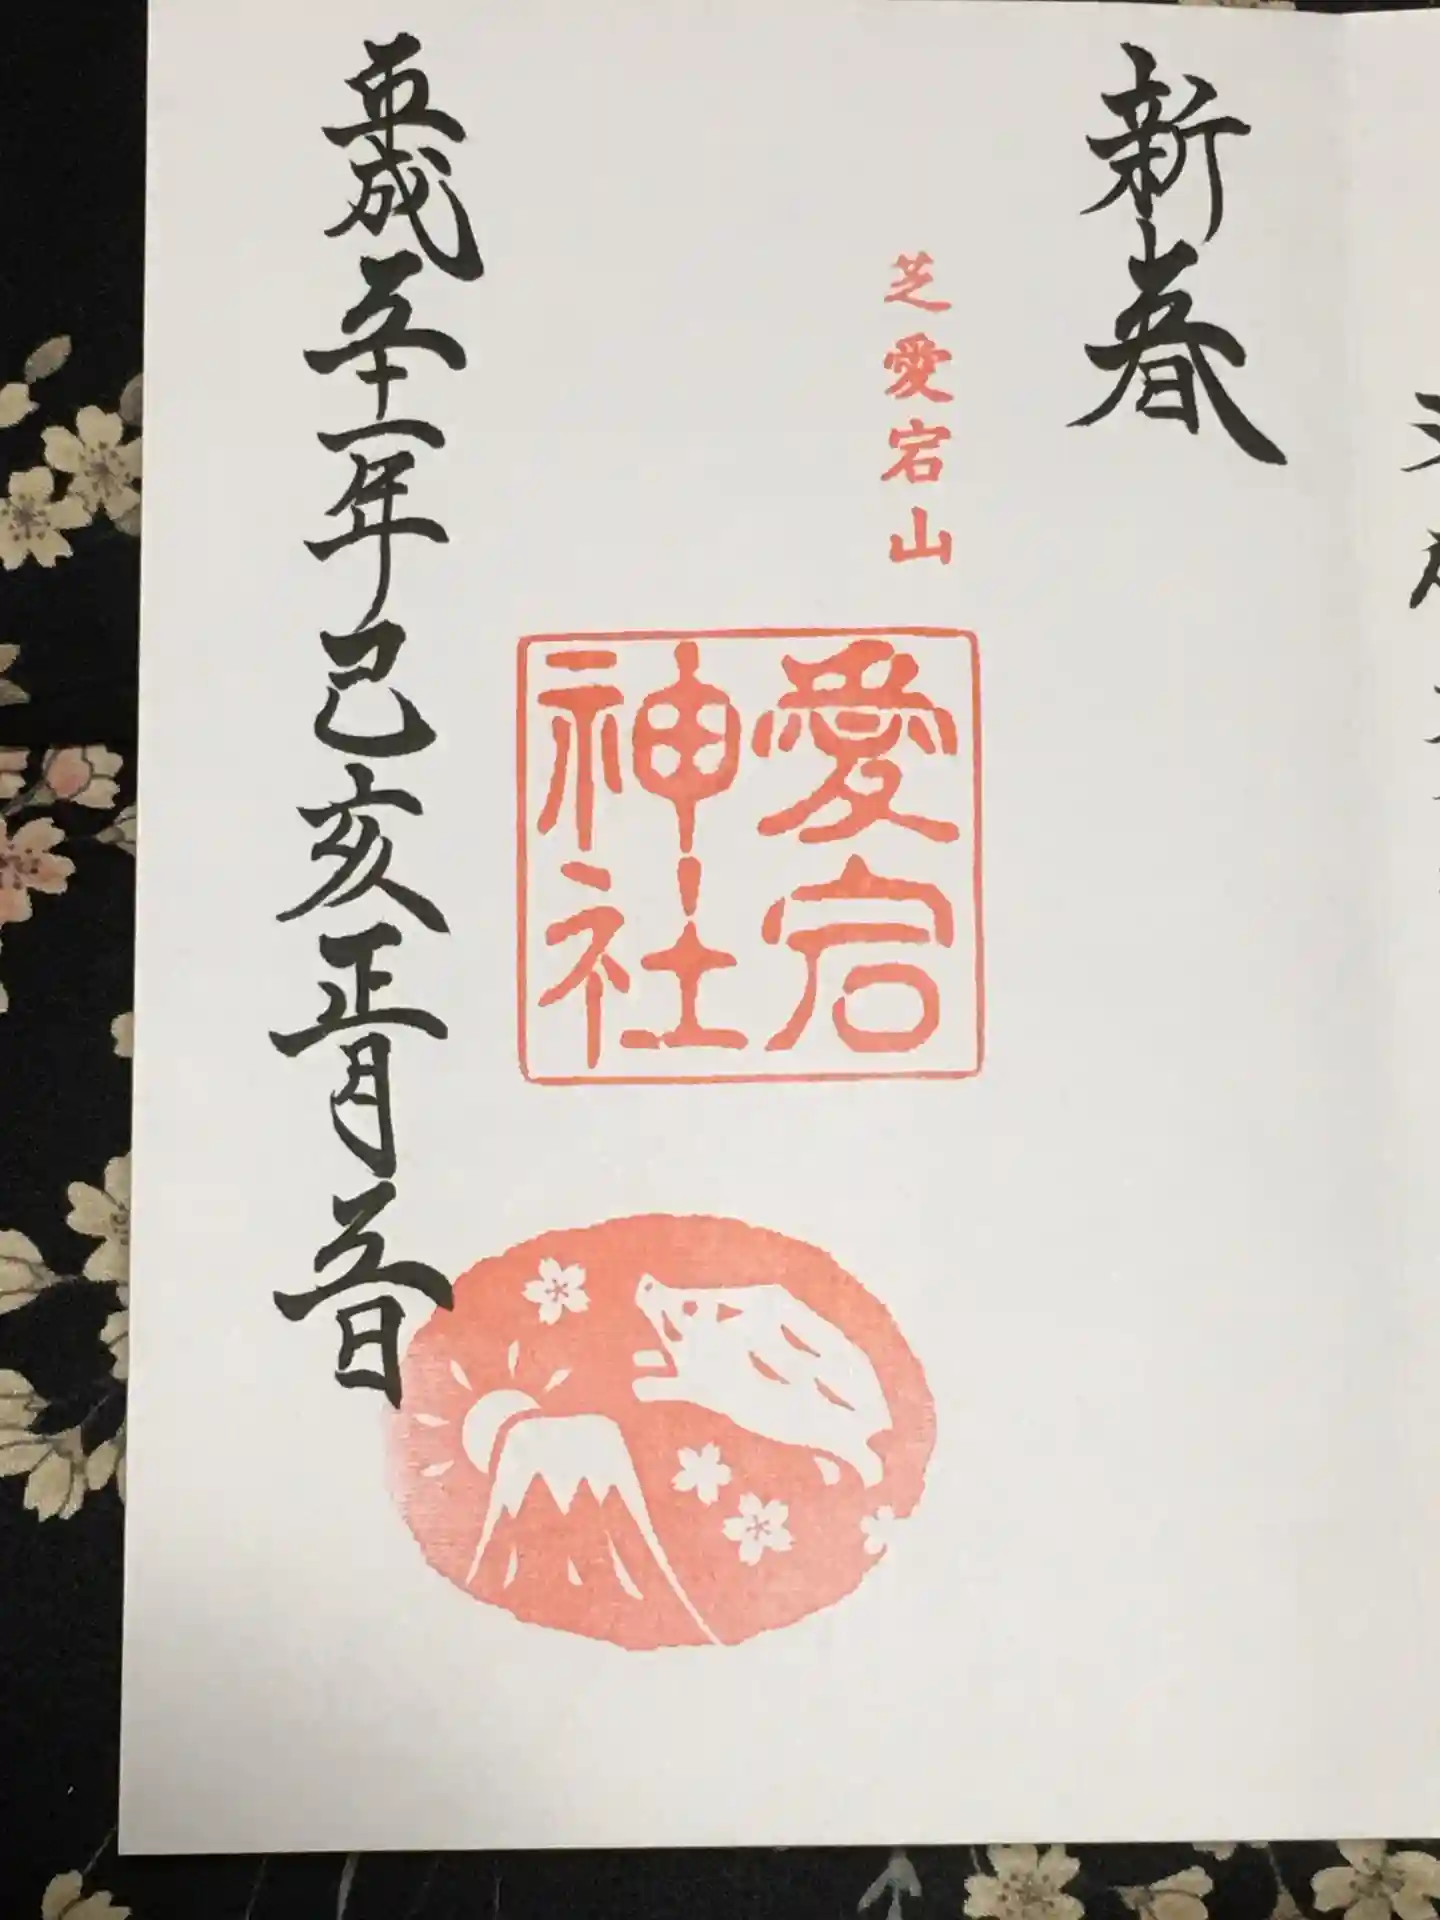 新春
芝愛宕山
愛宕
神社
平成三十一年己亥正月三日